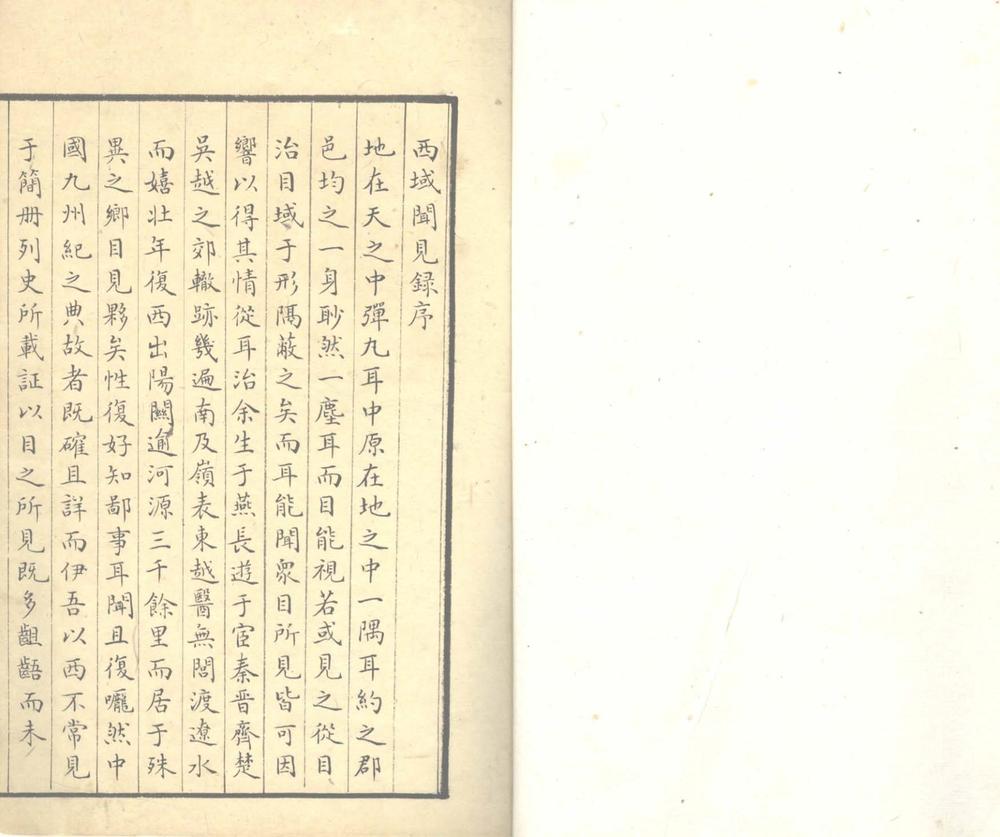 西域聞見録序
地在天之中彈丸耳中原在地之中一隅耳約之郡
邑均之一身眇然一塵耳而目能視若或見之從目
治目域于形隔蔽之矣而耳能聞衆目所見皆可因
響以得其情從耳治余生于燕長遊于宦秦晋齊楚
吳越之郊轍跡幾遍南及嶺表東越醫無閭渡遼水
而嬉壯年復西出陽關逾河源三千餘里而居于殊
異之鄉目見夥矣性復好知鄙事耳聞且復嚨然中
國九州紀之典故者既確且詳而伊吾以西不常見
于簡册列史所載証以目之所見既多齟齬而未